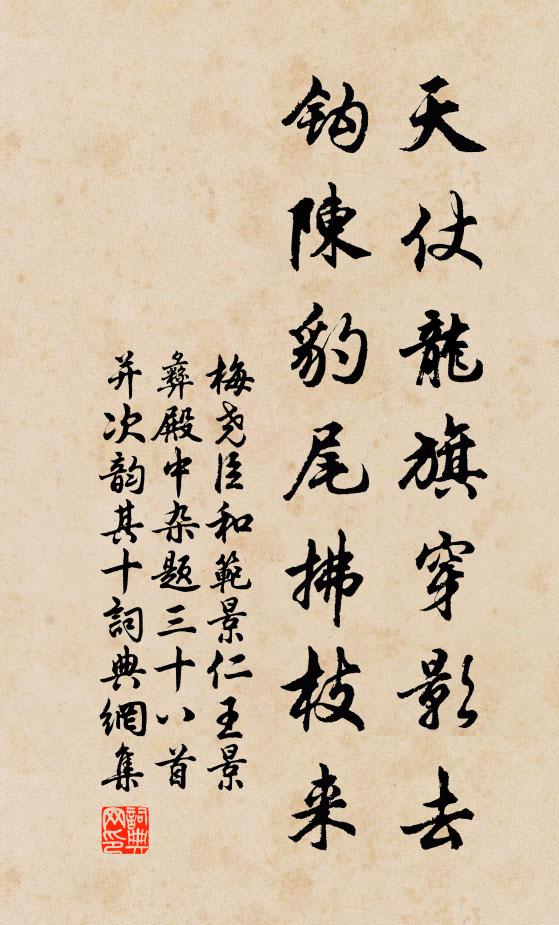 天仗龍旗穿影去
鈎陳豹尾拂枝来
梅尧臣和範景仁王景
彝殿中杂题三十八首
并次韵其十詞典網集
詞典
网印